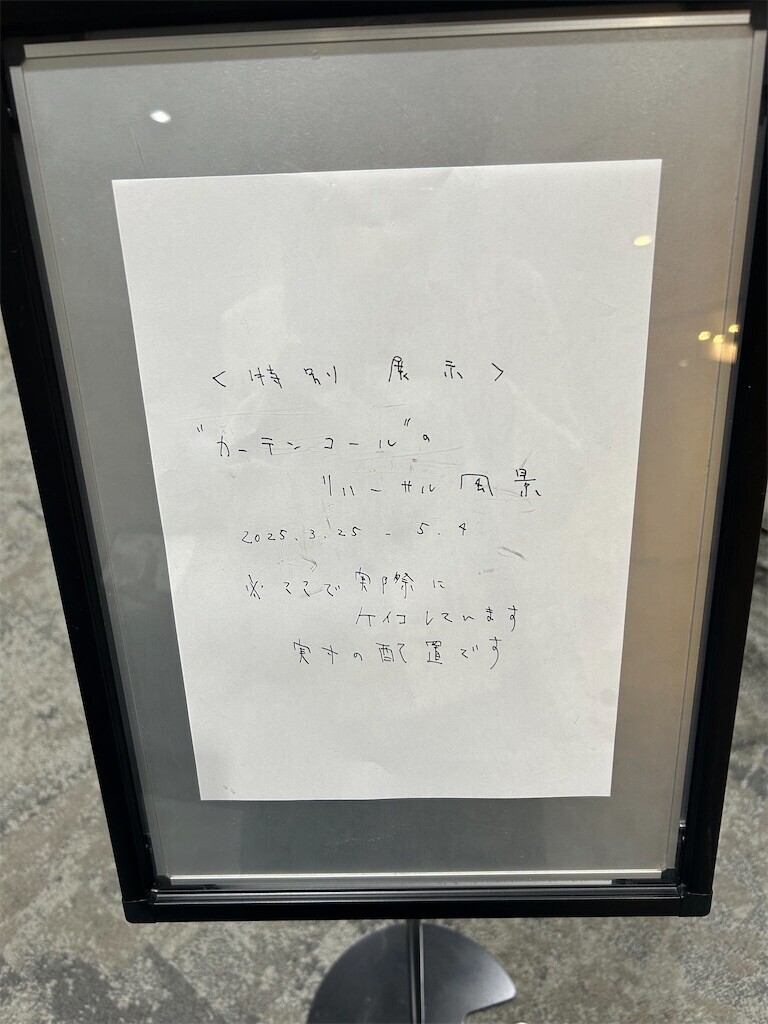 <特別 展示>
"カーテンコール"の
リハーサル風景
2025.3.25 - 5.4
※ここで実際に
ケイコしています
実寸の配置です